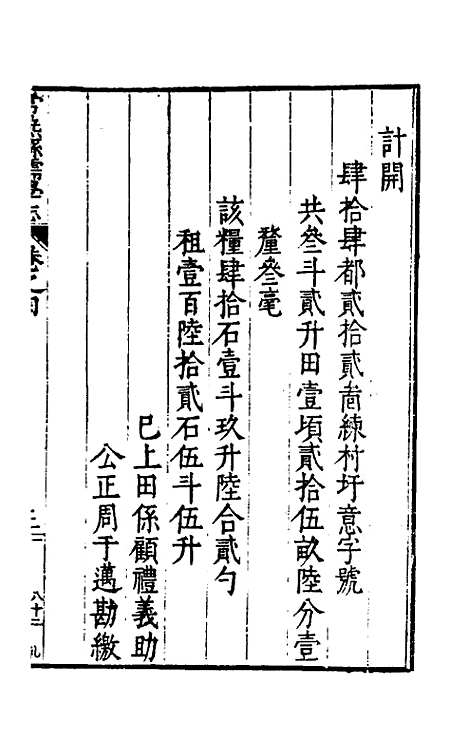 計開
肆拾肆都貳拾貳啚練村圩意字號
共叄斗貳升田壹頃貳拾伍畝陸分壹
釐叄毫
該糧肆拾石壹斗玖升陸合貳勺
租壹百陸拾貳石伍斗伍升
已上田係顧禮義助
公正周于邁勘繳
卷之四